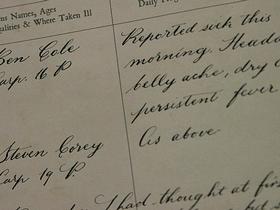 Names, Ages
Qualities & Where Taken Ill
Daily
Ken Cole
Carp. 16 P
Reported sick this
morning. Heada
belly ache, dry c
persistent fever
Steven Corey
Carp 19 P.
As above
had thought at firs
but